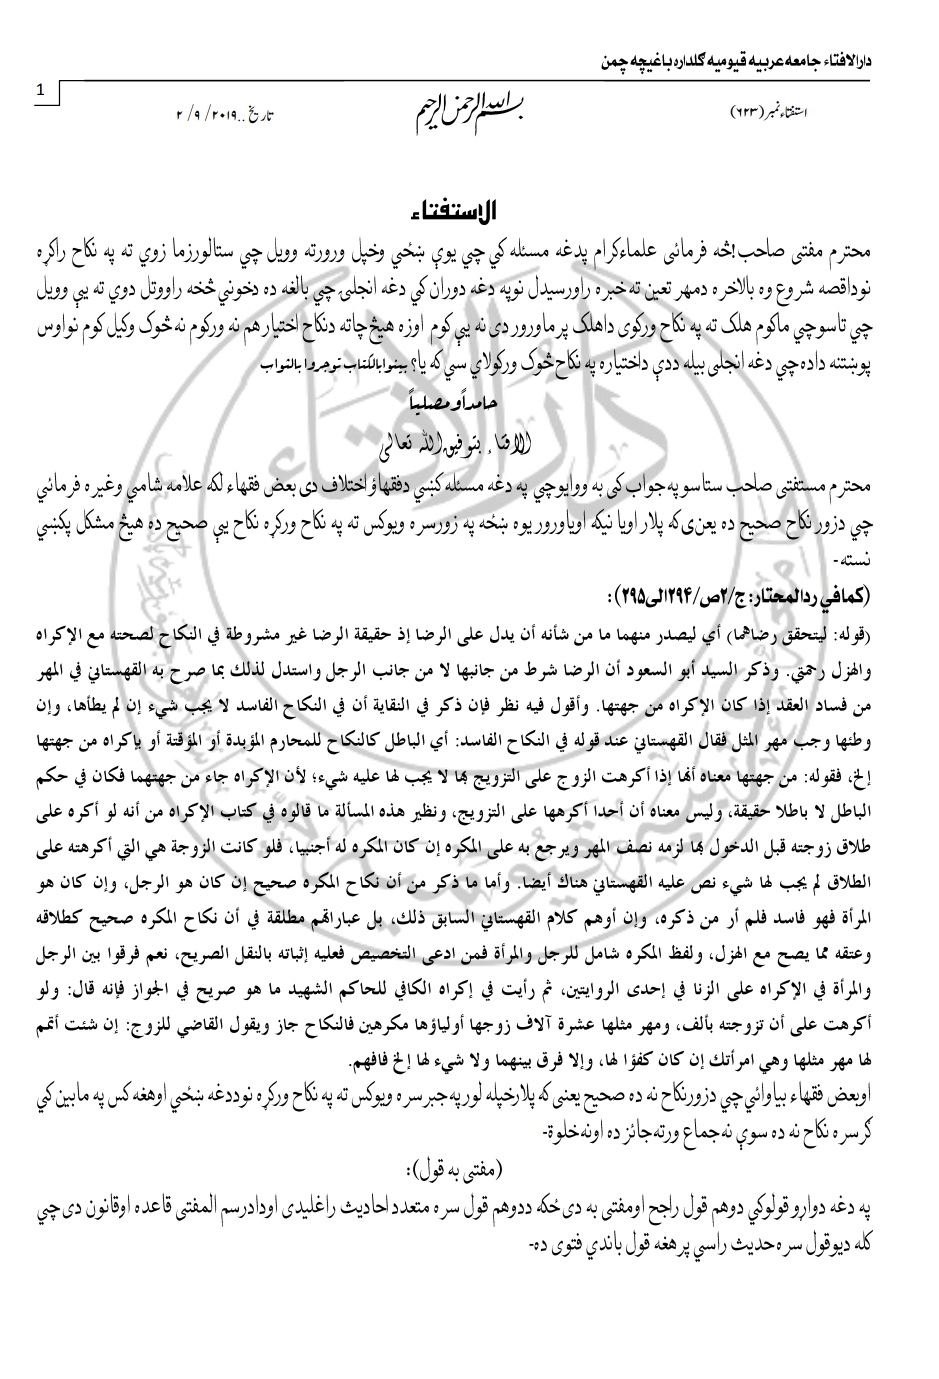 دارالافتاء جامعه عربیه قیومیه گلداره باغیچه چمن
1
استفتاء نمبر (٦٢٣)
بسم الله الرحمن الرحيم
تاریخ ..٢٠١٩/ ٩/ ٢
الاستفتاء
محترم مفتی صاحب!څه فرمائی علماءکرام پدغه مسئله کي چي یوې ښځي وخپل ورورته وویل چي ستالورزما زوي ته په نکاح راکړه
نوداقصه شروع وه بالاخره دمهر تعین ته خبره راورسیدل نوپه دغه دوران کي دغه انجلۍ چي بالغه ده دخوني څخه راووتل دوي ته یې وویل
چي تاسوچي ماکوم هلک ته په نکاح ورکوی داهلک پرماورور دی نه یې کوم اوزه هیڅ چاته دنکاح اختیار هم نه ورکوم نه څوک وکیل کوم نواوس
پوښتنه داده چي دغه انجلی بیله ددې داختیاره په نکاح څوک ورکولای سي که یا؟ بینوابالکتاب توجروا بالثواب
حامداًومصلیاً
الافتاء بتوفیق الله تعالی
محترم مستفتی صاحب ستاسوپه جواب کی به ووایوچي په دغه مسئله کښي دفقهاؤاختلاف دی بعض فقهاء لکه علامه شامي وغیره فرمائي
چي دزور نکاح صحیح ده یعنی که پلار اویا نیکه اویاورور یوه ښځه په زورسره ویوکس ته په نکاح ورکړه نکاح یې صحیح ده هیڅ مشکل پکښي
نسته-
(کمافي ردالمحتار: ج/٢ص/٢٩٤الی٢٩٥):
(قوله: ليتحقق رضاهما) أي ليصدر منهما ما من شأنه أن يدل على الرضا إذ حقيقة الرضا غير مشروطة في النكاح لصحته مع الإكراه
والهزل رحمتي. وذكر السيد أبو السعود أن الرضا شرط من جانبها لا من جانب الرجل واستدل لذلك بما صرح به القهستاني في المهر
من فساد العقد إذا كان الإكراه من جهتها. وأقول فيه نظر فإن ذكر في النقاية أن في النكاح الفاسد لا يجب شيء إن لم يطأها، وإن
وطئها وجب مهر المثل فقال القهستاني عند قوله في النكاح الفاسد: أي الباطل كالنكاح للمحارم المؤبدة أو المؤقتة أو بإكراه من جهتها
إلخ، فقوله: من جهتها معناه أنها إذا أكرهت الزوج على التزويج بها لا يجب لها عليه شيء؛ لأن الإكراه جاء من جهتهما فكان في حكم
الباطل لا باطلا حقيقة، وليس معناه أن أحدا أكرهها على التزويج، ونظير هذه المسألة ما قالوه في كتاب الإكراه من أنه لو أكره على
طلاق زوجته قبل الدخول بها لزمه نصف المهر ويرجع به على المكره إن كان المكره له أجنبيا، فلو كانت الزوجة هي التي أكرهته على
الطلاق لم يجب لها شيء نص عليه القهستاني هناك أيضا. وأما ما ذكر من أن نكاح المكره صحيح إن كان هو الرجل، وإن كان هو
المرأة فهو فاسد فلم أر من ذكره، وإن أوهم كلام القهستاني السابق ذلك، بل عباراتهم مطلقة في أن نكاح المكره صحيح كطلاقه
وعتقه مما يصح مع الهزل، ولفظ المكره شامل للرجل والمرأة فمن ادعى التخصيص فعليه إثباته بالنقل الصريح، نعم فرقوا بين الرجل
والمرأة في الإكراه على الزنا في إحدى الروايتين، ثم رأيت في إكراه الكافي للحاكم الشهيد ما هو صريح في الجواز فإنه قال: ولو
أكرهت على أن تزوجته بألف، ومهر مثلها عشرة آلاف زوجها أولياؤها مكرهين فالنكاح جاز ويقول القاضي للزوج: إن شئت أتمم
لها مهر مثلها وهي امرأتك إن كان كفؤا لها، وإلا فرق بينهما ولا شيء لها إلخ فافهم.
اوبعض فقهاء بیاوائي چي دزورنکاح نه ده صحیح یعنی که پلارخپله لورپه جبرسره ویوکس ته په نکاح ورکړه نوددغه ښځي اوهغه کس په مابین کي
کرسره نکاح نه ده سوې نه جماع ورته جائز ده اونه خلوة-
(مفتی به قول):
په دغه دواړو قولوکي دوهم قول راجح اومفتی به دی ځکه ددوهم قول سره متعدد احادیث راغلیدی اودادرسم المفتی قاعده اوقانون دی چي
کله دیوقول سره حدیث راسي پرهغه قول باندي فتوی ده-